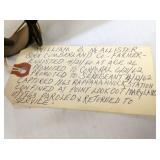 WILLIAM B. McALLISTER
CUMBERLAND Co. FARMER -
ENLISTED 4/21/62 AT AGE 26
PROMOTED TO CORPORAL
PROMOTED TO SERGEANT
CAPTURED RAPPAHANNOCK STATION
CONFINED AT POINT LOOKOUT MARYLAND
PAROLED & RETURNED TO
SERVICE